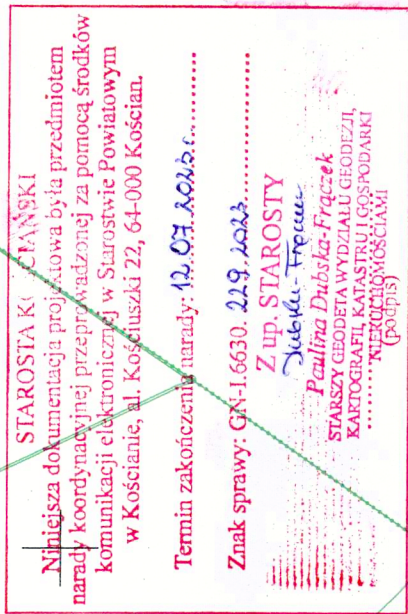 STAROSTA KOŚCIAŃSKI
Niniejsza dokumentacja projektowa była przedmiotem
narady koordynacyjnej przeprowadzonej za pomocą środków
komunikacji elektronicznej w Starostwie Powiatowym
w Kościanie, al. Kościuszki 22, 64-000 Kościan.
Termin zakończenia narady: 12.07.2023 r.
Znak sprawy: GN-I.6630. 229.2023
Z up. STAROSTY
Dubska-Frączek
Paulina Dubska-Frączek
STARSZY GEODETA WYDZIAŁU GEODEZJI,
KARTOGRAFII, KATASTRU I GOSPODARKI
NIERUCHOMOŚCIAMI
(podpis)